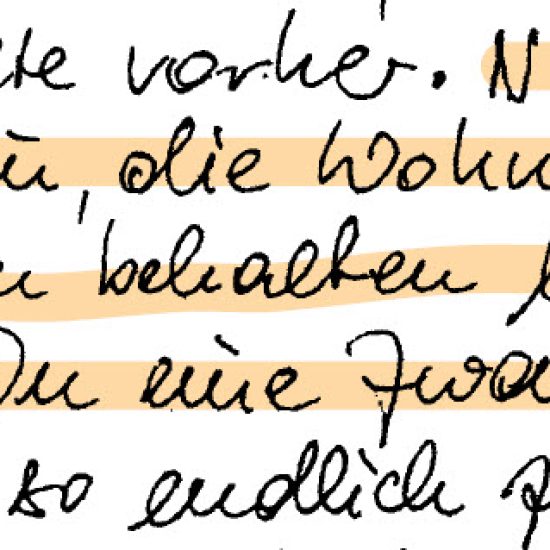 vorher. N
, die Wohn
behalten
Du eine Zwa
so endlich